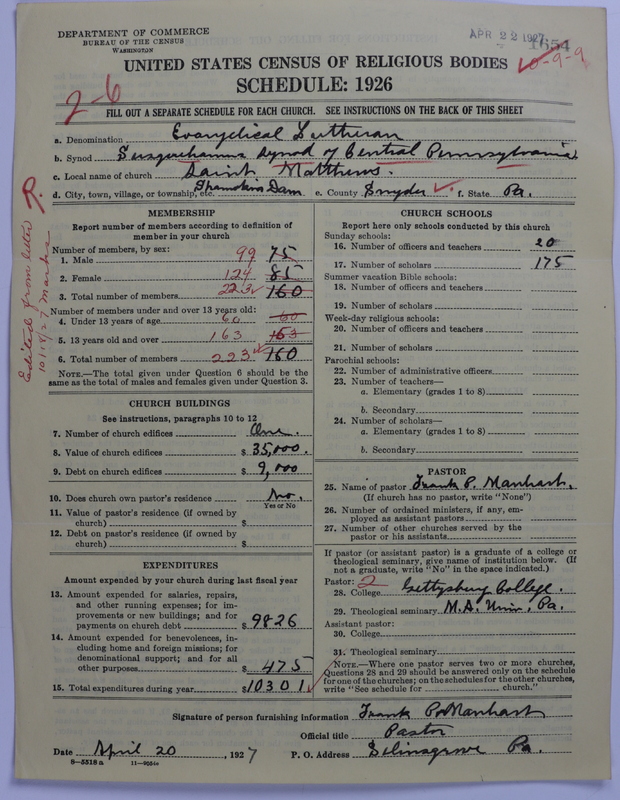 DEPARTMENT OF COMMERCE
BUREAU OF THE CENSUS
WASHINGTON
APR 22 1927
1654
UNITED STATES CENSUS OF RELIGIOUS BODIES
0-9-9
SCHEDULE: 1926
2-6
FILL OUT A SEPARATE SCHEDULE FOR EACH CHURCH. SEE INSTRUCTIONS ON THE BACK OF THIS SHEET
a. Denomination Evangelical Lutheran
b. Synod Susquehanna Synod of Central Pennsylvania
c. Local name of church Saint Matthews.
d. City, town, village, or township, etc. Shamokin Dam e. County Snyder f. State Pa.
Edited from letter
10/14/27 Marks
MEMBERSHIP
Report number of members according to definition of
member in your church
Number of members, by sex:
1. Male 99 75
2. Female 124 85
3. Total number of members 223 160
Number of members under and over 13 years old:
4. Under 13 years of age 60 60
5. 13 years old and over 163 163
6. Total number of members 223 160
NOTE.—The total given under Question 6 should be
same as the total of males and females given under Question 3.
CHURCH BUILDINGS
See instructions, paragraphs 10 to 12
7. Number of church edifices One.
8. Value of church edifices $35,000.
9. Debt on church edifices $9,000
10. Does church own pastor's residence No.
Yes or No
11. Value of pastor's residence (if owned by
church) $
12. Debt on pastor's residence (if owned by
church) $
EXPENDITURES
Amount expended by your church during last fiscal year
13. Amount expended for salaries, repairs,
and other running expenses; for im-
provements or new buildings; and for
payments on church debt $9826
14. Amount expended for benevolences, in-
cluding home and foreign missions; for
denominational support; and for all
other purposes $475
15. Total expenditures during year $10301
CHURCH SCHOOLS
Report here only schools conducted by this church
Sunday schools:
16. Number of officers and teachers 20
17. Number of scholars 175
Summer vacation Bible schools:
18. Number of officers and teachers
19. Number of scholars
Week-day religious schools:
20. Number of officers and teachers
21. Number of scholars
Parochial schools:
22. Number of administrative officers
23. Number of teachers—
a. Elementary (grades 1 to 8)
b. Secondary
24. Number of scholars—
a. Elementary (grades 1 to 8)
b. Secondary
PASTOR
25. Name of pastor Frank P. Manhart.
(If church has no pastor, write "None")
26. Number of ordained ministers, if any, em-
ployed as assistant pastors
27. Number of other churches served by the
pastor or his assistants
If pastor (or assistant pastor) is a graduate of a college or
theological seminary, give name of institution below. (If
not a graduate, write "No" in the space indicated.)
Pastor: 2
28. College Gettysburg College.
29. Theological seminary M.A. Univ, Pa.
Assistant pastor:
30. College
31. Theological seminary
NOTE.—Where one pastor serves two or more churches,
Questions 28 and 29 should be answered only on the schedule
for one of the churches; on the schedules for the other churches,
write "See schedule for church."
Signature of person furnishing information Frank P. Manhart
Official title Pastor
Date April 20, 1927 P. O. Address Selinsgrove Pa.
8-5518 a